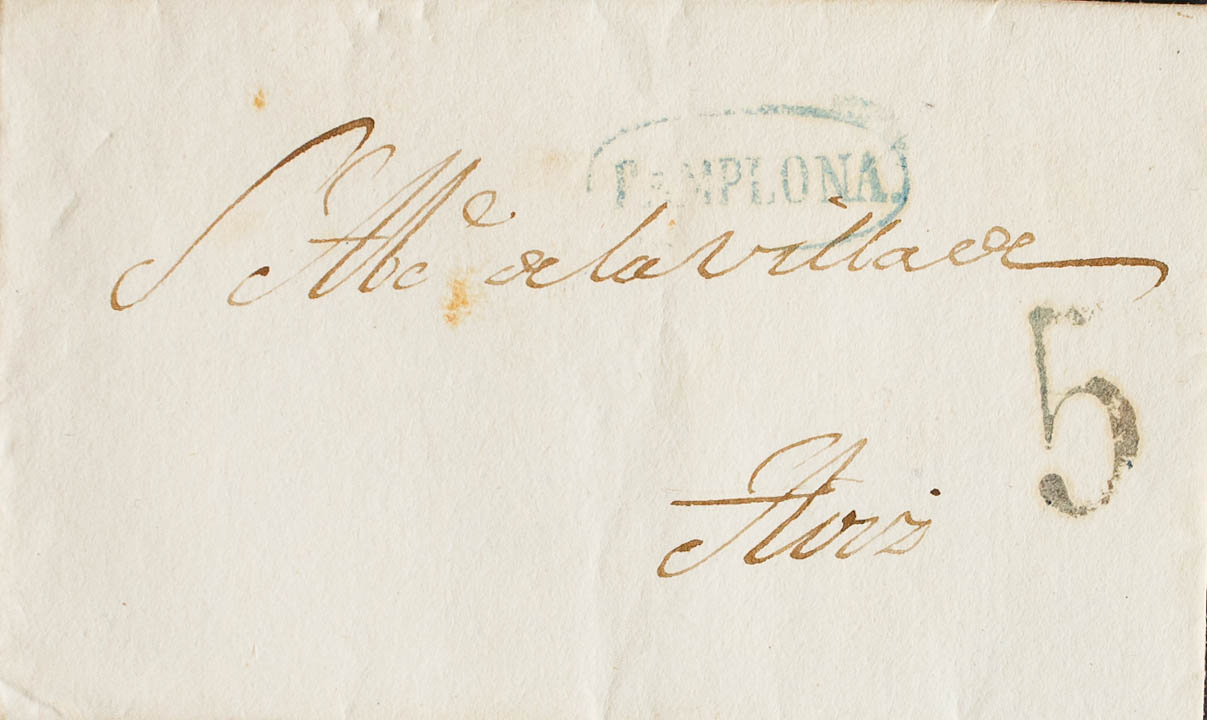 PAMPLONA.
Sr. Alce de la villa de
5
Aoiz